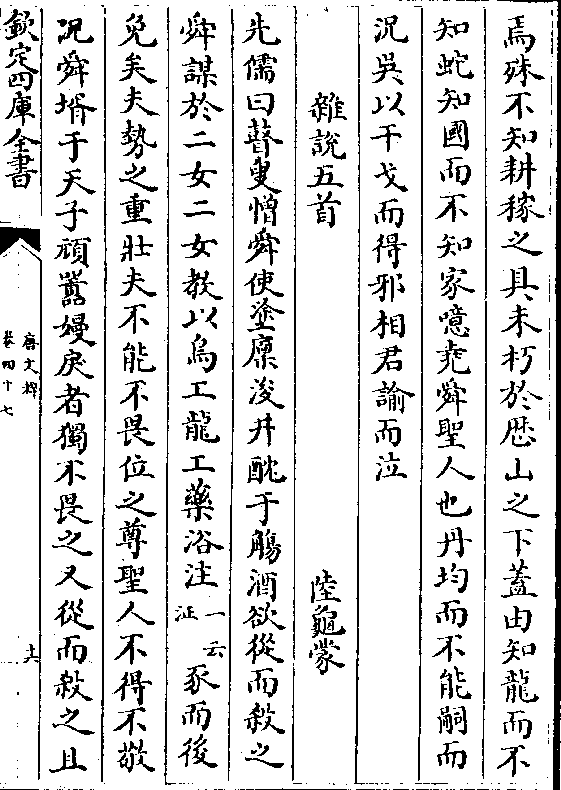 焉殊不知耕稼之具未朽於歴山之下蓋由知龍而不
知蛇知國而不知家噫堯舜聖人也丹均而不能嗣而
況吳以干戈而得邪相君諭而泣
雜說五首 陸龜蒙
先儒曰瞽叟憎舜使塗廩浚井酖于觴酒欲從而殺之
舜謀於二女二女教以鳥工龍工藥浴注一云㲼豕而後
免矣夫勢之重壯夫不能不畏位之尊聖人不得不敬
況舜壻于天子頑嚚嫚戾者獨不畏之又從而殺之且
欽定四庫全書
唐文粹
卷四十七
十六